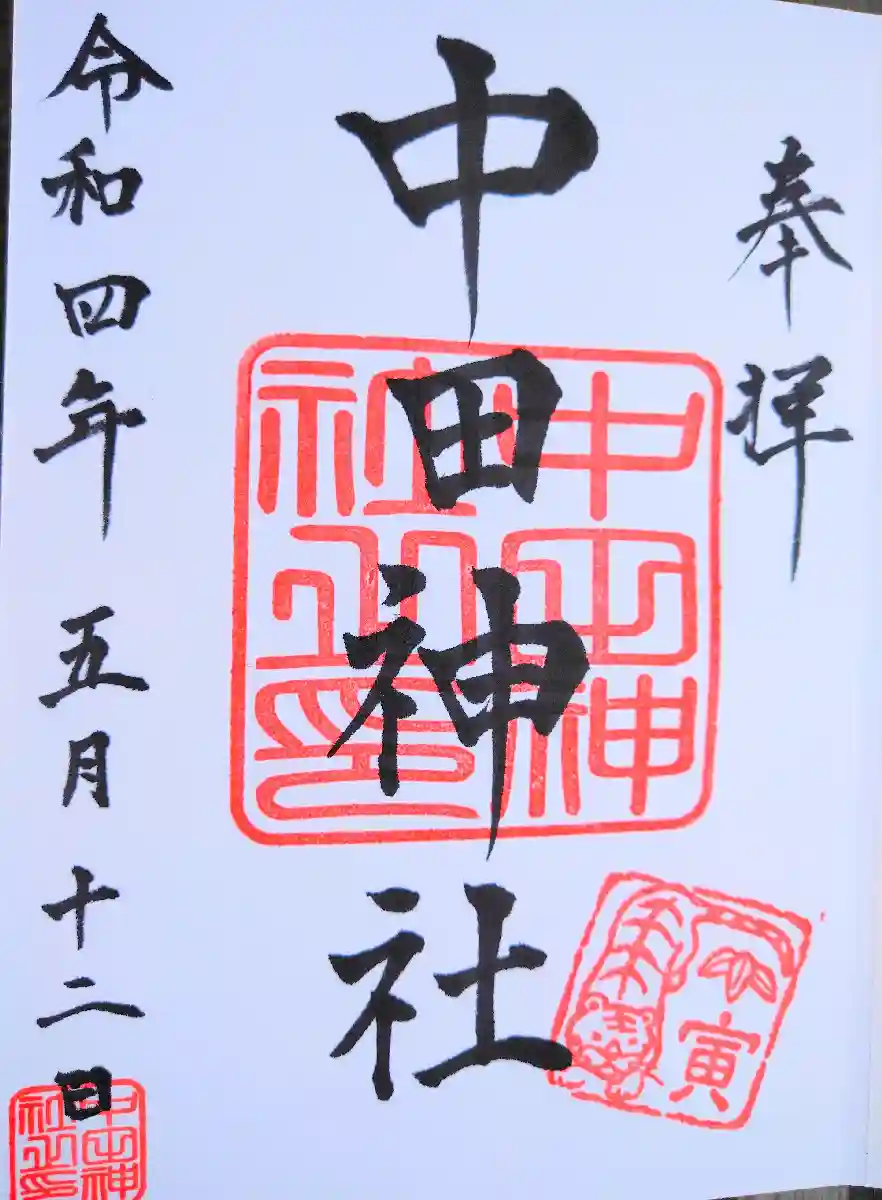 奉拝
中田神社
令和四年 五月 十二日
中田神社之印
寅
中田神社之印